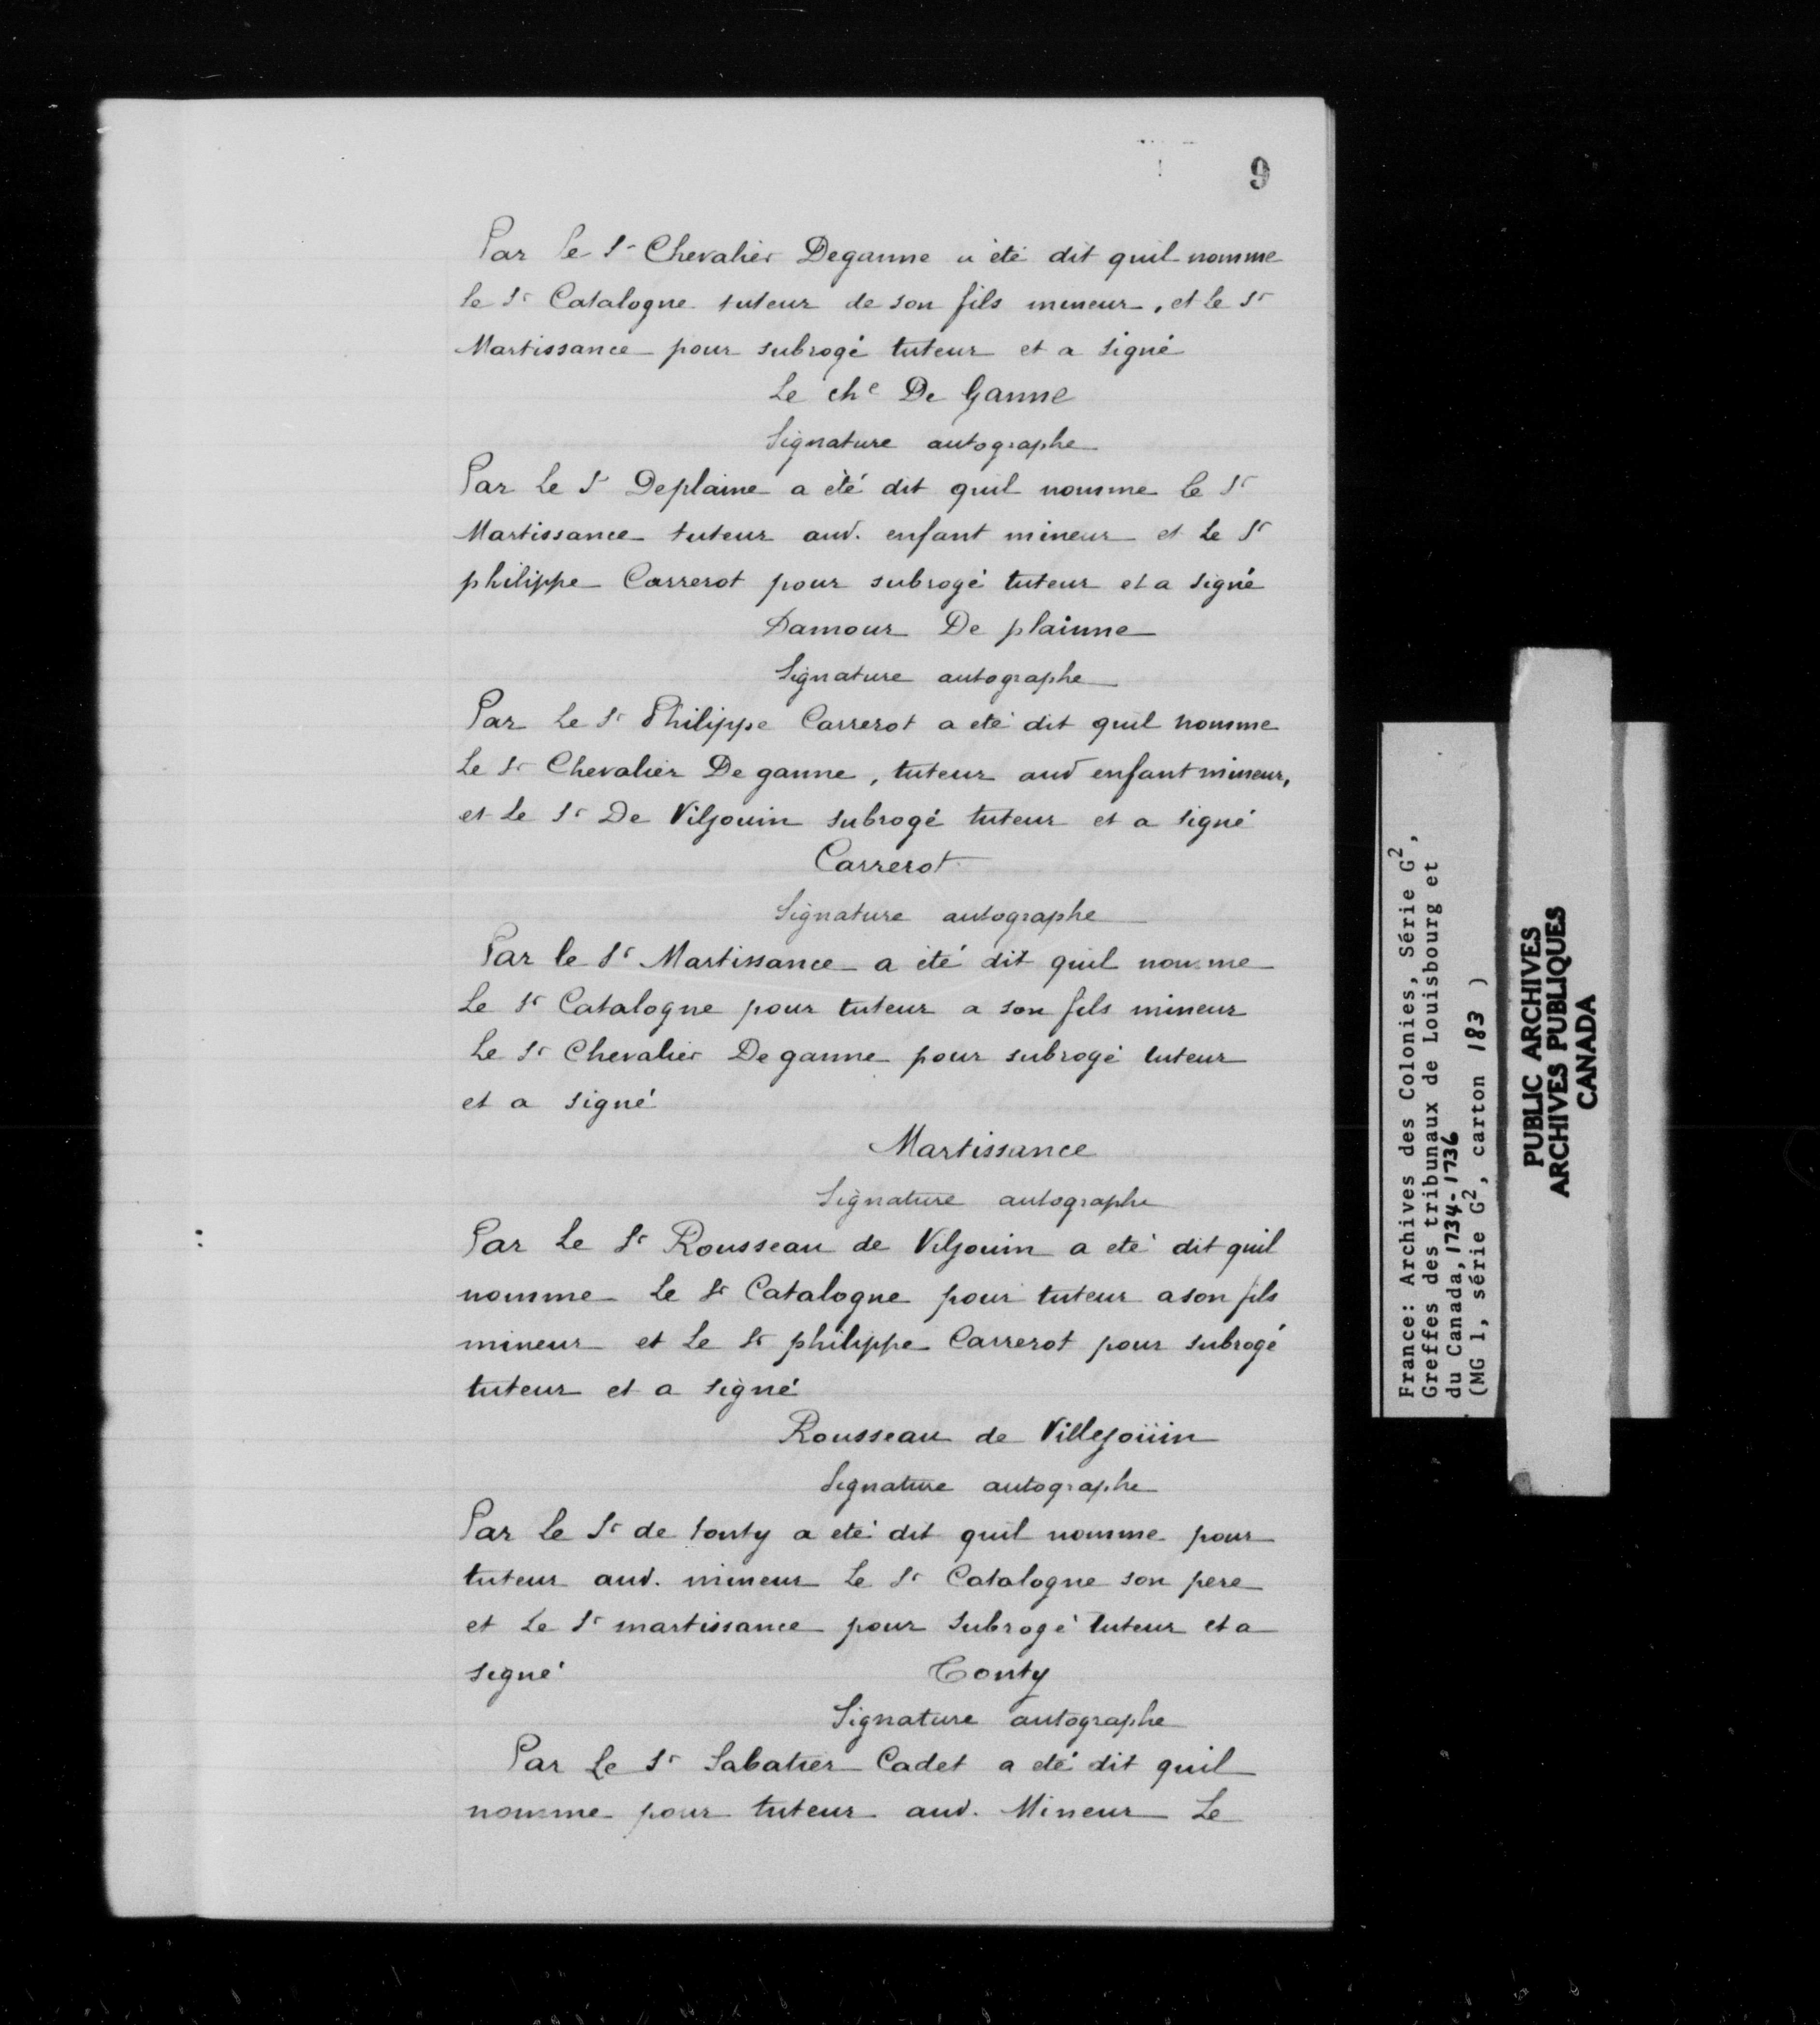 9
Par le Sr Chevalier Deganne a été dit quil nomme
le Sr Catalogne tuteur de son fils mineur, et le Sr
Martissance pour subrogé tuteur et a signé
Le che De Ganne
Signature autographe
Par Le Sr Deplaine a été dit quil nomme le Sr
Martissance tuteur aud. enfant mineur et Le Sr
philippe Carrerot pour subrogé tuteur et a signé
Damour De plainne
Signature autographe
Par Le Sr Philippe Carrerot a eté dit quil nomme
Le Sr Chevalier De ganne, tuteur aud enfant mineur,
et Le Sr De Viljouin subrogé tuteur et a signé
Carrerot
Signature autographe
Par le Sr Martissance a été dit quil nomme
Le Sr Catalogne pour tuteur a son fils mineur
Le Sr Chevalier De ganne pour subrogé tuteur
et a signé
Martissance
Signature autographe
Par Le Sr Rousseau de Viljouin a eté dit quil
nomme Le Sr Catalogne pour tuteur a son fils
mineur et Le Sr philippe Carrerot pour subrogé
tuteur et a signé
Rousseau de Villejoüin
Signature autographe
Par Le Sr de tonty a eté dit quil nomme pour
tuteur aud. mineur Le Sr Catalogne son pere
et Le Sr martissance pour subrogé tuteur et a
signé Tonty
Signature autographe
Par Le Sr Sabatier Cadet a eté dit quil
nomme pour tuteur aud. Mineur Le
France: Archives des Colonies, Série G2,
Greffes des tribunaux de Louisbourg et
du Canada, 1734-1736
(MG 1, série G2, carton 183 )
PUBLIC ARCHIVES
ARCHIVES PUBLIQUES
CANADA